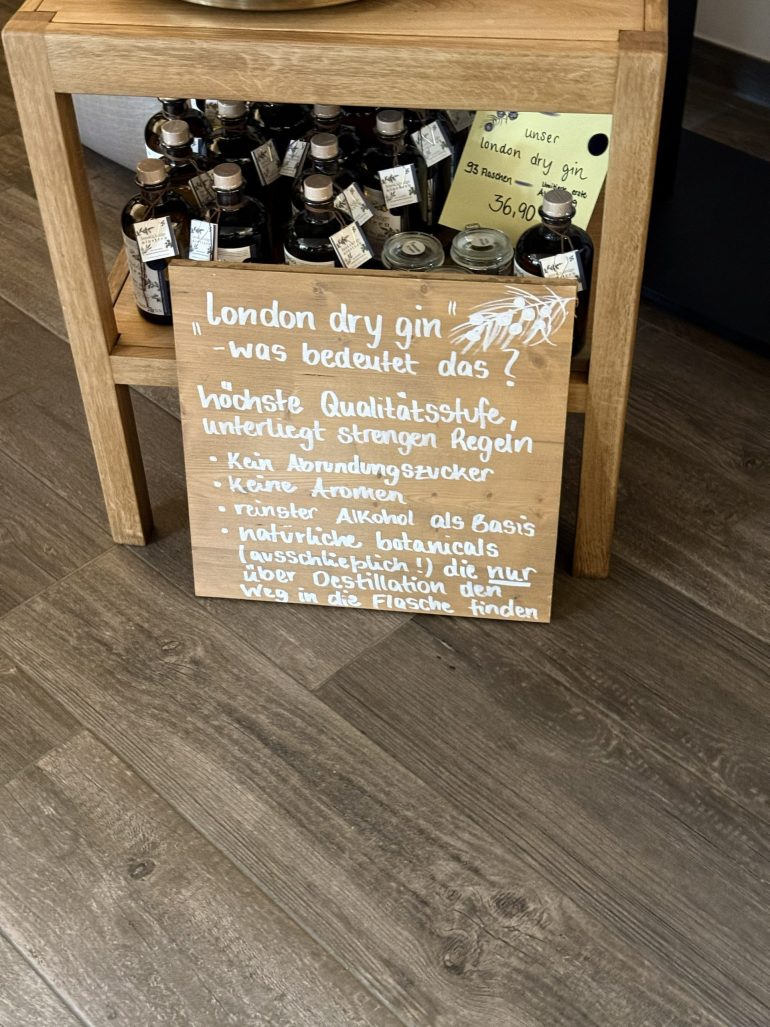 unser
london dry gin
93 Flaschen
erste
36,90
„london dry gin"
-was bedeutet das?
höchste Qualitätsstufe,
unterliegt strengen Regeln
• Kein Abrundungszucker
• Keine Aromen
• reinster Alkohol als Basis
• natürliche botanicals
(ausschließlich!) die nur
über Destillation den
Weg in die Flasche finden